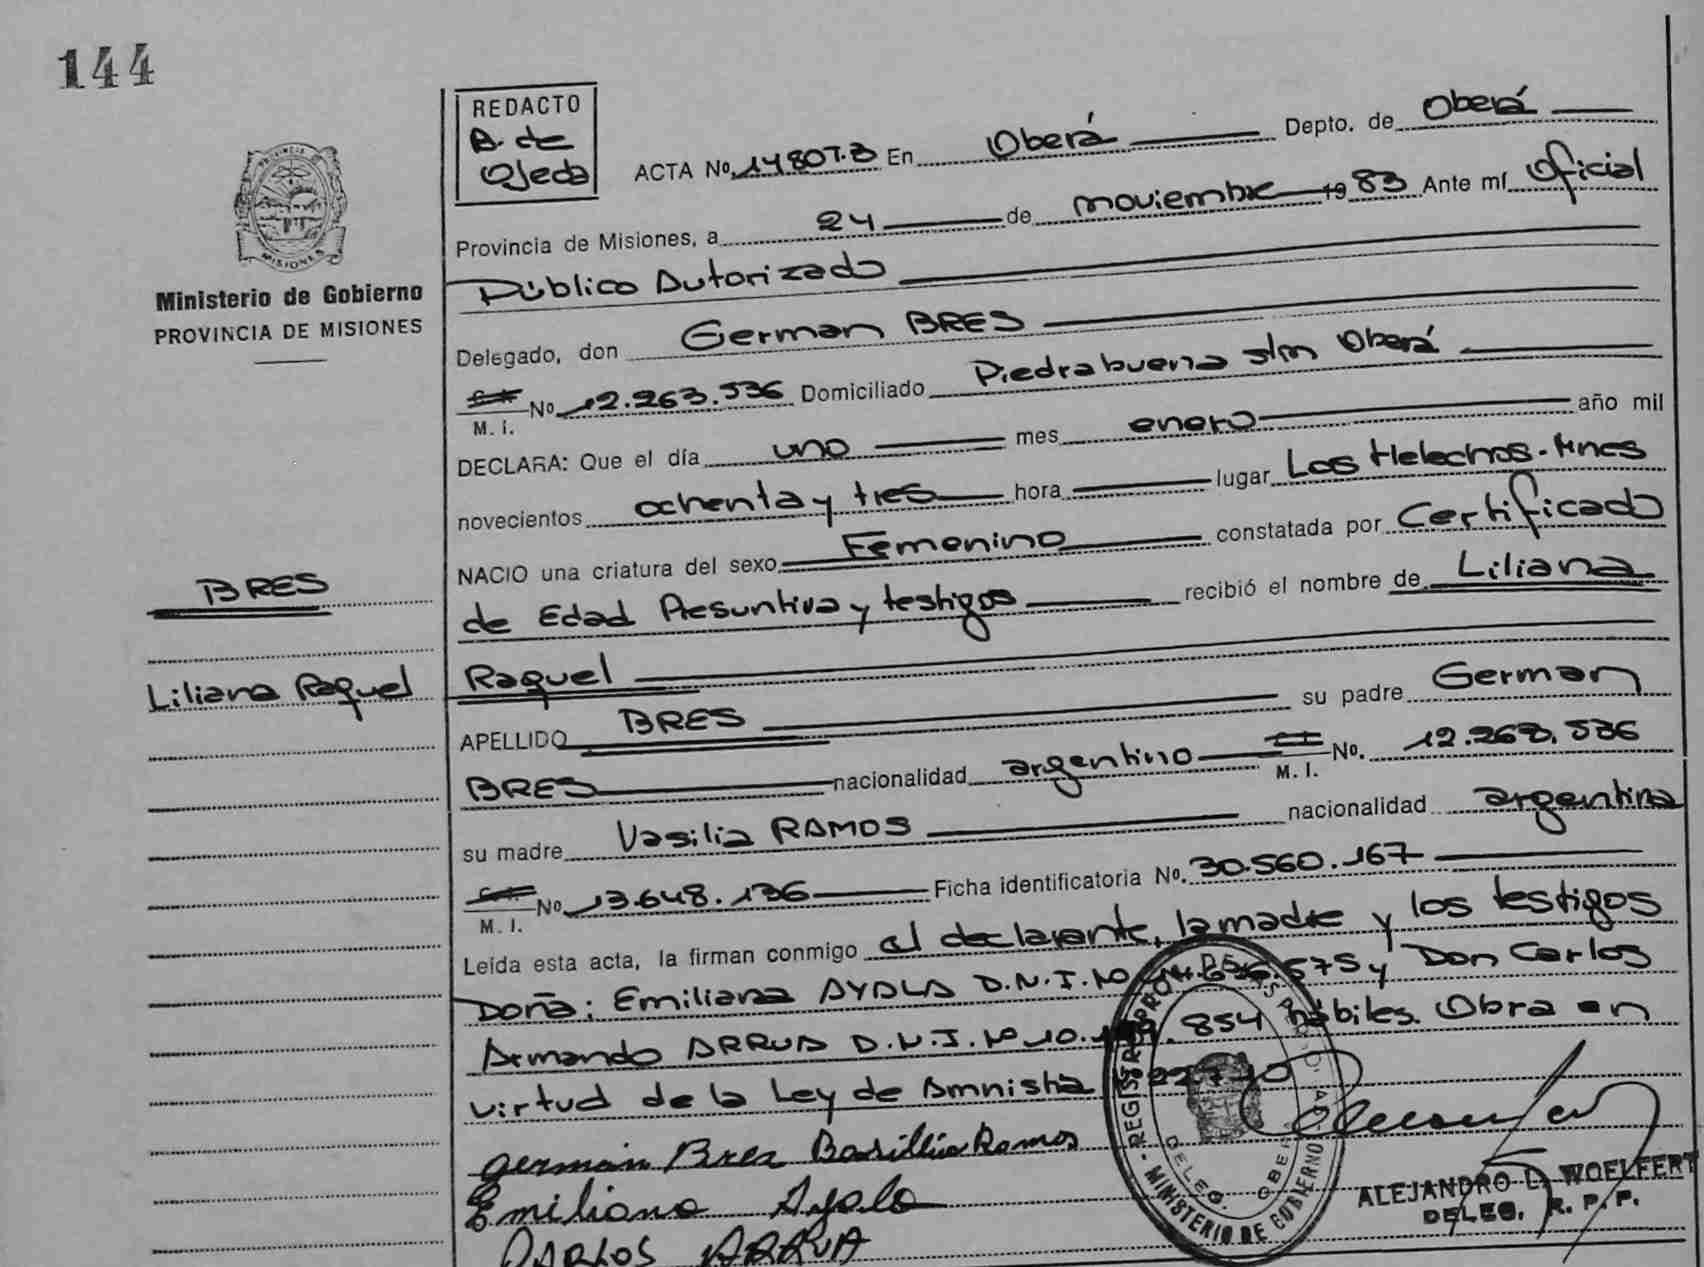 144
REDACTO
A. de
Ojeda
ACTA No. 1480T.B En Oberá Depto. de Oberá
Provincia de Misiones, a 24 de noviembre 1983 Ante mí Oficial
Público Autorizado
PROVINCIA DE
MISIONES
Ministerio de Gobierno
PROVINCIA DE MISIONES
Delegado, don German BRES
M. I. No 12.263.536 Domiciliado Piedrabuena s/n Oberá
DECLARA: Que el día uno mes enero año mil
novecientos ochenta y tres hora lugar Los Helechos-Mnes
NACIO una criatura del sexo Femenino constatada por Certificado
de Edad Presuntiva y testigos recibió el nombre de Liliana
BRES
Raquel
Liliana Raquel
APELLIDO BRES su padre German
BRES nacionalidad argentino M. I. No. 12.263.536
su madre Vasilia RAMOS nacionalidad argentina
M. I. No 13.648.136 Ficha identificatoria No. 30.560.167
Leída esta acta, la firman conmigo el declarante, la madre y los testigos
Doña: Emiliana AYALA D.N.I. No .575 y Don Carlos
Armando ARRUA D.N.I. No 10. .854 hábiles. Obra en
virtud de la Ley de Amnistía
german Bres Basillia Ramos
Emiliana Ayala
CARLOS ARRUA
MINISTERIO DE GOBIERNO
DELEG. OBERA
ALEJANDRO L. WOELFERT
DELEG. R. P. P.